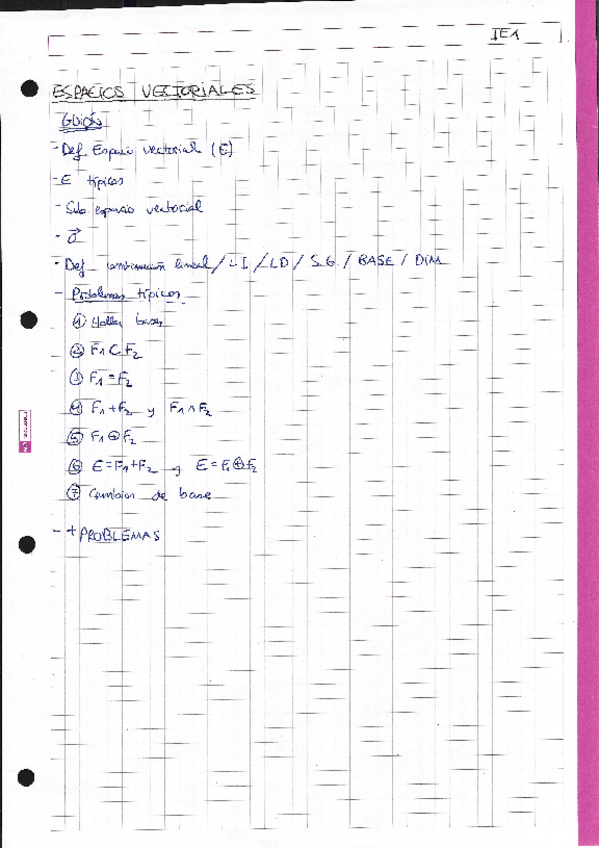 IEA
ESPACIOS VECTORIALES
Guión
- Def Espacio vectorial (E)
- E típicos
- Sub espacio vectorial
- 0⃗
- Def combinación lineal / LI / LD / SG / BASE / DIM
- Problemas típicos
① Hallar bases
② F₁ ⊂ F₂
③ F₁ = F₂
④ F₁ + F₂ y F₁ ∩ F₂
⑤ F₁ ⊕ F₂
⑥ E = F₁ + F₂ y E = F₁ ⊕ F₂
⑦ Cambios de base
- + PROBLEMAS